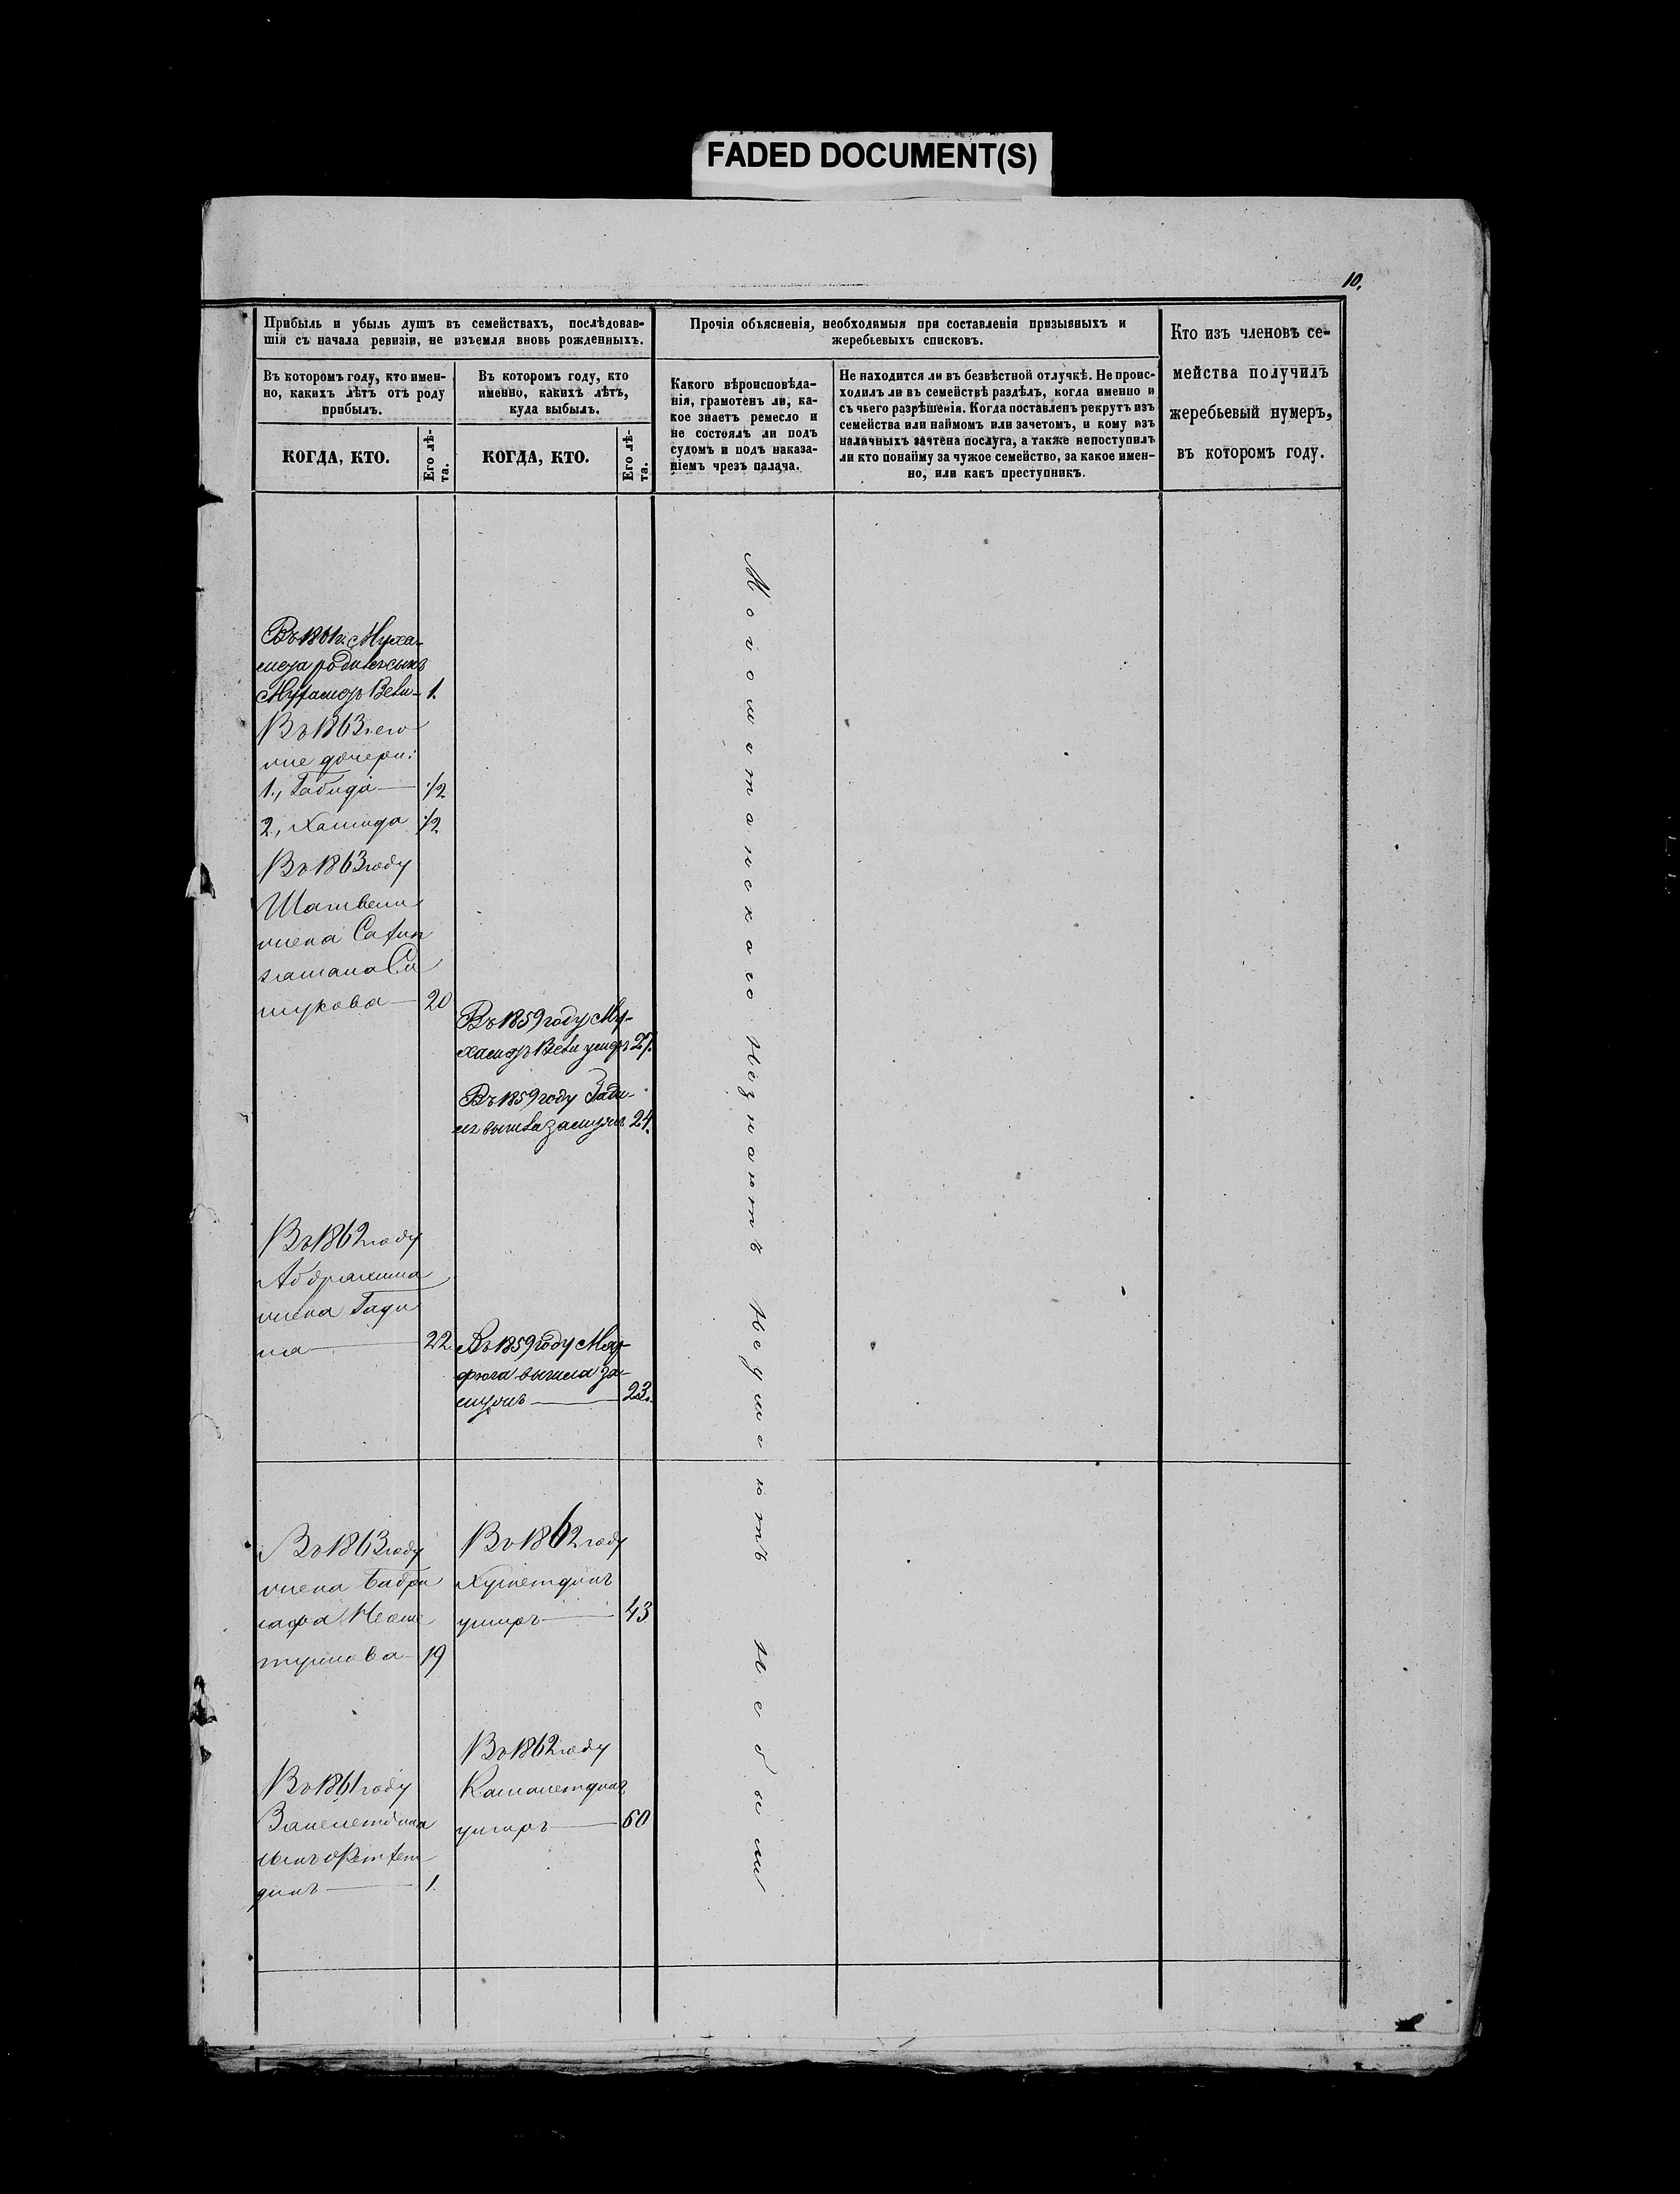 FADED DOCUMENT(S)
10.
Прибыль и убыль душъ въ семействахъ, послѣдовав-
шія съ начала ревизіи, не изъемля вновь рожденныхъ.
Въ которомъ году, кто имен-
но, какихъ лѣтъ отъ роду
прибылъ.
КОГДА, КТО.
Его лѣ-
та.
Въ которомъ году, кто
именно, какихъ лѣтъ,
куда выбылъ.
КОГДА, КТО.
Его лѣ-
та.
Прочія объясненія, необходимыя при составленіи призывныхъ и
жеребьевыхъ списковъ.
Какого вѣроисповѣда-
нія, грамотенъ ли, ка-
кое знаетъ ремесло и
не состоялъ ли подъ
судомъ и подъ наказа-
ніемъ чрезъ палача.
Не находится ли въ безвѣстной отлучкѣ. Не проис-
ходилъ ли въ семействѣ раздѣлъ, когда именно и
съ чьего разрѣшенія. Когда поставленъ рекрутъ изъ
семейства или наймомъ или зачетомъ, и кому изъ
наличныхъ зачтена послуга, а также непоступилъ
ли кто понайму за чужое семейство, за какое имен-
но, или какъ преступникъ.
Кто изъ членовъ се-
мейства получилъ
жеребьевый нумеръ,
въ которомъ году.
Въ 1861 г. Муха-
меда родился сынъ
Вели 1.
Въ 1863 г его
же дочери:
1., Габида 1/2
2., Хамида 1/2
Въ 1863 году
Шагивали
жена
20
Въ 1862 году
Абдрахима
жена Гади
ма 22
Въ 1863 году
жена Бадри
19
Въ 1861 году
сынъ
динъ 1
Въ 1859 году Му-
хамедъ Вели умеръ 27.
Въ 1859 году
вышла замужъ 24.
Въ 1859 году
вышла за-
мужъ 23.
Въ 1862 году
Хуснетдинъ
умеръ 43
Въ 1862 году
Камалетдинъ
умеръ 60
Магометанскаго Незнаютъ Неумеютъ Небыли